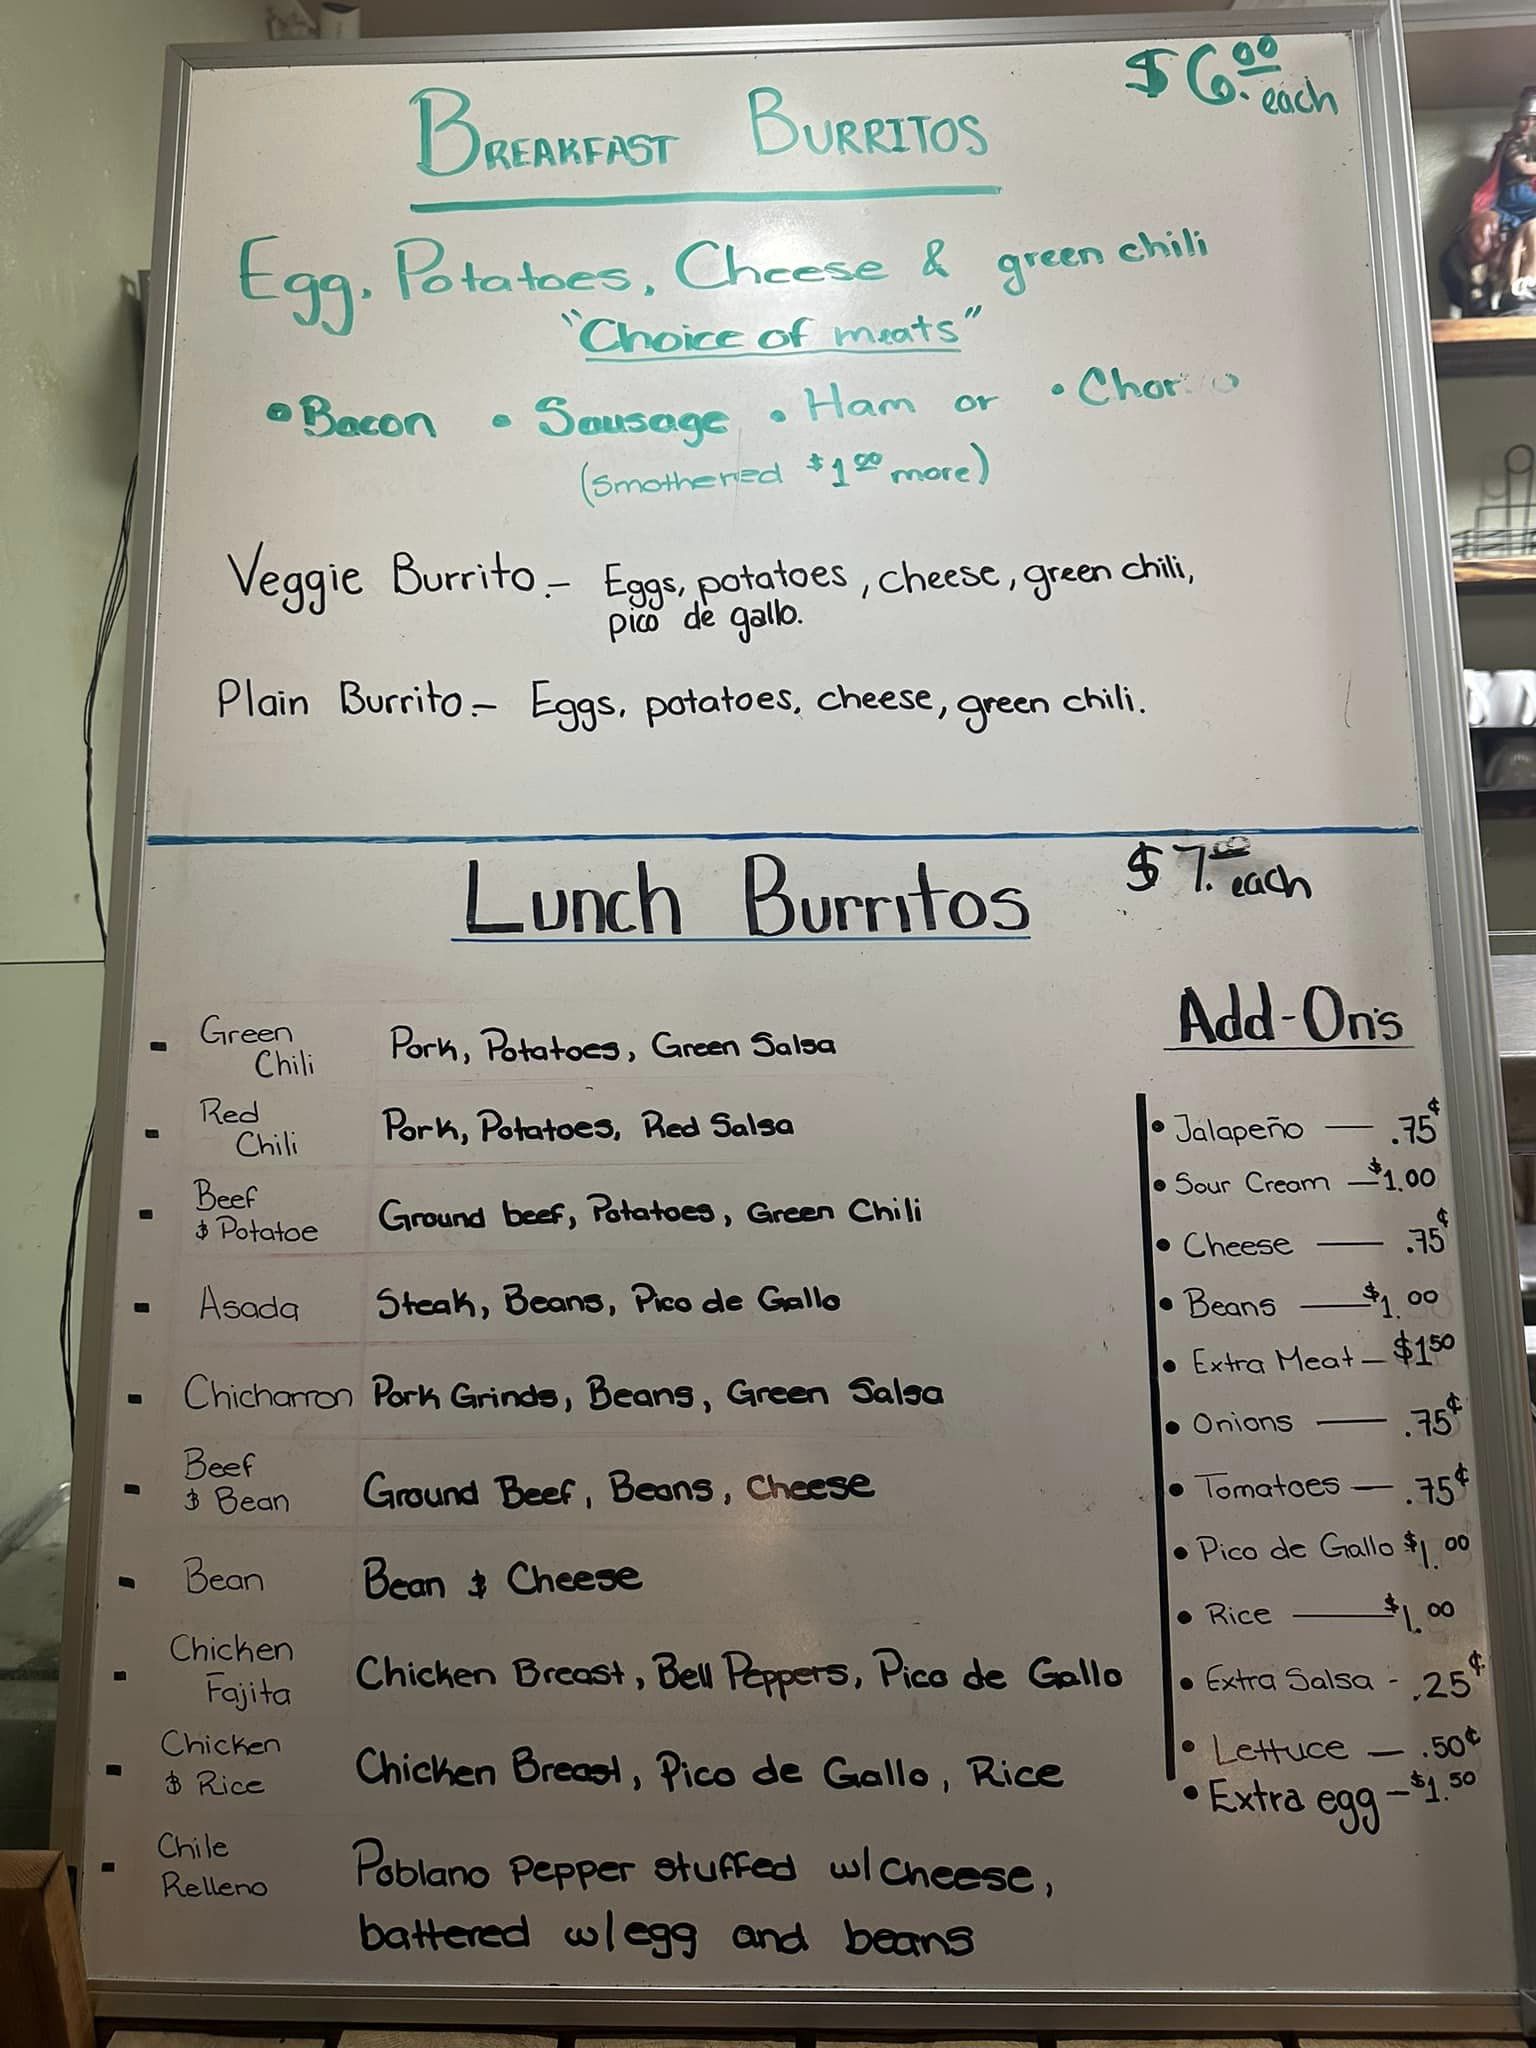 $6.00 each
Breakfast Burritos
Egg, Potatoes, Cheese & green chili
"Choice of meats"
• Bacon • Sausage • Ham or •
(Smothered $1.00 more)
Veggie Burrito.- Eggs, potatoes, cheese, green chili,
pico de gallo.
Plain Burrito.- Eggs, potatoes, cheese, green chili.
Lunch Burritos
$7.00 each
- Green Chili Pork, Potatoes, Green Salsa
- Red Chili Pork, Potatoes, Red Salsa
- Beef & Potatoe Ground beef, Potatoes, Green Chili
- Asada Steak, Beans, Pico de Gallo
- Chicharron Pork Grinds, Beans, Green Salsa
- Beef & Bean Ground Beef, Beans, Cheese
- Bean Bean & Cheese
- Chicken Fajita Chicken Breast, Bell Peppers, Pico de Gallo
- Chicken & Rice Chicken Breast, Pico de Gallo, Rice
- Chile Relleno Poblano Pepper stuffed w/ Cheese,
battered w/ egg and beans
Add-On's
• Jalapeño — .75¢
• Sour Cream — $1.00
• Cheese — .75¢
• Beans — $1.00
• Extra Meat — $1.50
• Onions — .75¢
• Tomatoes — .75¢
• Pico de Gallo $1.00
• Rice — $1.00
• Extra Salsa - .25¢
• Lettuce — .50¢
• Extra egg — $1.50